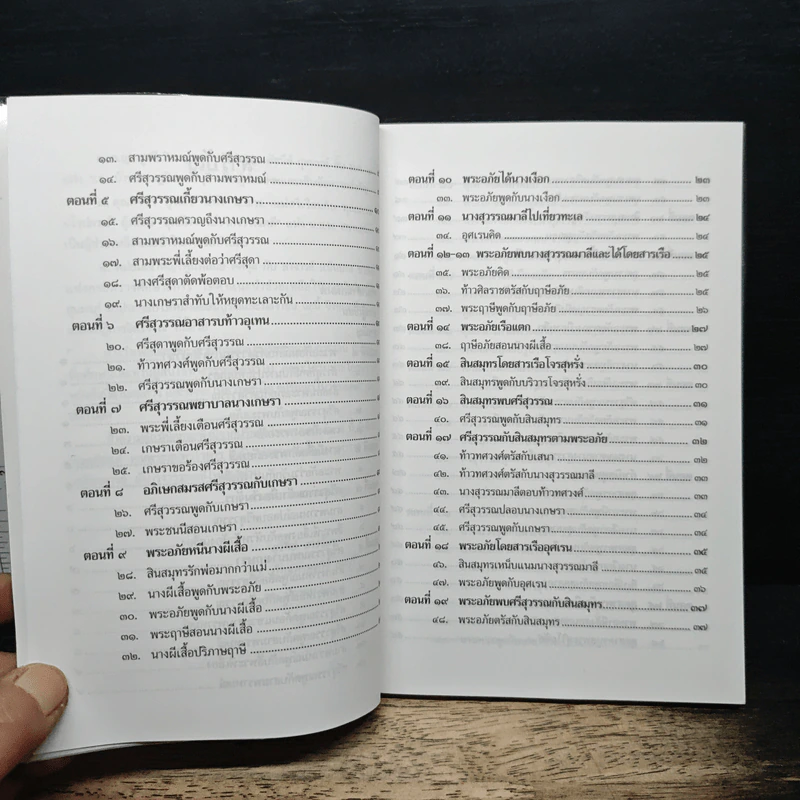 ๑๓. สามพราหมณ์พูดกับศรีสุวรรณ
๑๔. ศรีสุวรรณพูดกับสามพราหมณ์
ตอนที่ ๕ ศรีสุวรรณเกี้ยวนางเกษรา
๑๕. ศรีสุวรรณครวญถึงนางเกษรา
๑๖. สามพราหมณ์พูดกับศรีสุวรรณ
๑๗. สามพระพี่เลี้ยงต่อว่าศรีสุดา
๑๘. นางศรีสุดาตัดพ้อตอบ
๑๙. นางเกษราสำทับให้หยุดทะเลาะกัน
ตอนที่ ๖ ศรีสุวรรณอาสารบท้าวอุเทน
๒๐. ศรีสุดาพูดกับศรีสุวรรณ
๒๑. ท้าวทศวงศ์พูดกับศรีสุวรรณ
๒๒. ศรีสุวรรณพูดกับนางเกษรา
ตอนที่ ๗ ศรีสุวรรณพยาบาลนางเกษรา
๒๓. พระพี่เลี้ยงเตือนศรีสุวรรณ
๒๔. เกษราเตือนศรีสุวรรณ
๒๕. เกษราขอร้องศรีสุวรรณ
ตอนที่ ๘ อภิเษกสมรสศรีสุวรรณกับเกษรา
๒๖. ศรีสุวรรณพูดกับเกษรา
๒๗. พระชนนีสอนเกษรา
ตอนที่ ๙ พระอภัยหนีนางผีเสื้อ
๒๘. สินสมุทรรักพ่อมากกว่าแม่
๒๙. นางผีเสื้อพูดกับพระอภัย
๓๐. พระอภัยพูดกับนางผีเสื้อ
๓๑. พระฤาษีสอนนางผีเสื้อ
๓๒. นางผีเสื้อปริภาษฤาษี
ตอนที่ ๑๐ พระอภัยได้นางเงือก ๒๓
๓๓. พระอภัยพูดกับนางเงือก ๒๓
ตอนที่ ๑๑ นางสุวรรณมาลีไปเที่ยวทะเล ๒๔
๓๔. อุศเรนคิด ๒๔
ตอนที่ ๑๒-๑๓ พระอภัยพบนางสุวรรณมาลีและได้โดยสารเรือ ๒๕
๓๕. พระอภัยคิด ๒๕
๓๖. ท้าวศิลราชตรัสกับฤาษีอภัย ๒๕
๓๗. พระฤาษีพูดกับฤาษีอภัย ๒๖
ตอนที่ ๑๔ พระอภัยเรือแตก ๒๗
๓๘. ฤาษีอภัยสอนนางผีเสื้อ ๒๗
ตอนที่ ๑๕ สินสมุทรโดยสารเรือโจรสุหรั่ง ๓๐
๓๙. สินสมุทรพูดกับบริวารโจรสุหรั่ง ๓๐
ตอนที่ ๑๖ สินสมุทรพบศรีสุวรรณ ๓๑
๔๐. ศรีสุวรรณพูดกับสินสมุทร ๓๑
ตอนที่ ๑๗ ศรีสุวรรณกับสินสมุทรตามพระอภัย ๓๒
๔๑. ท้าวทศวงศ์ตรัสกับเสนา ๓๒
๔๒. ท้าวทศวงศ์ตรัสกับนางสุวรรณมาลี ๓๓
๔๓. นางสุวรรณมาลีตอบท้าวทศวงศ์ ๓๓
๔๔. ศรีสุวรรณปลอบนางเกษรา ๓๔
๔๕. ศรีสุวรรณพูดกับเกษรา ๓๔
ตอนที่ ๑๘ พระอภัยโดยสารเรืออุศเรน ๓๕
๔๖. สินสมุทรเหน็บแนมนางสุวรรณมาลี ๓๕
๔๗. พระอภัยพูดกับอุศเรน ๓๖
ตอนที่ ๑๙ พระอภัยพบศรีสุวรรณกับสินสมุทร ๓๗
๔๘. พระอภัยตรัสกับสินสมุทร ๓๗